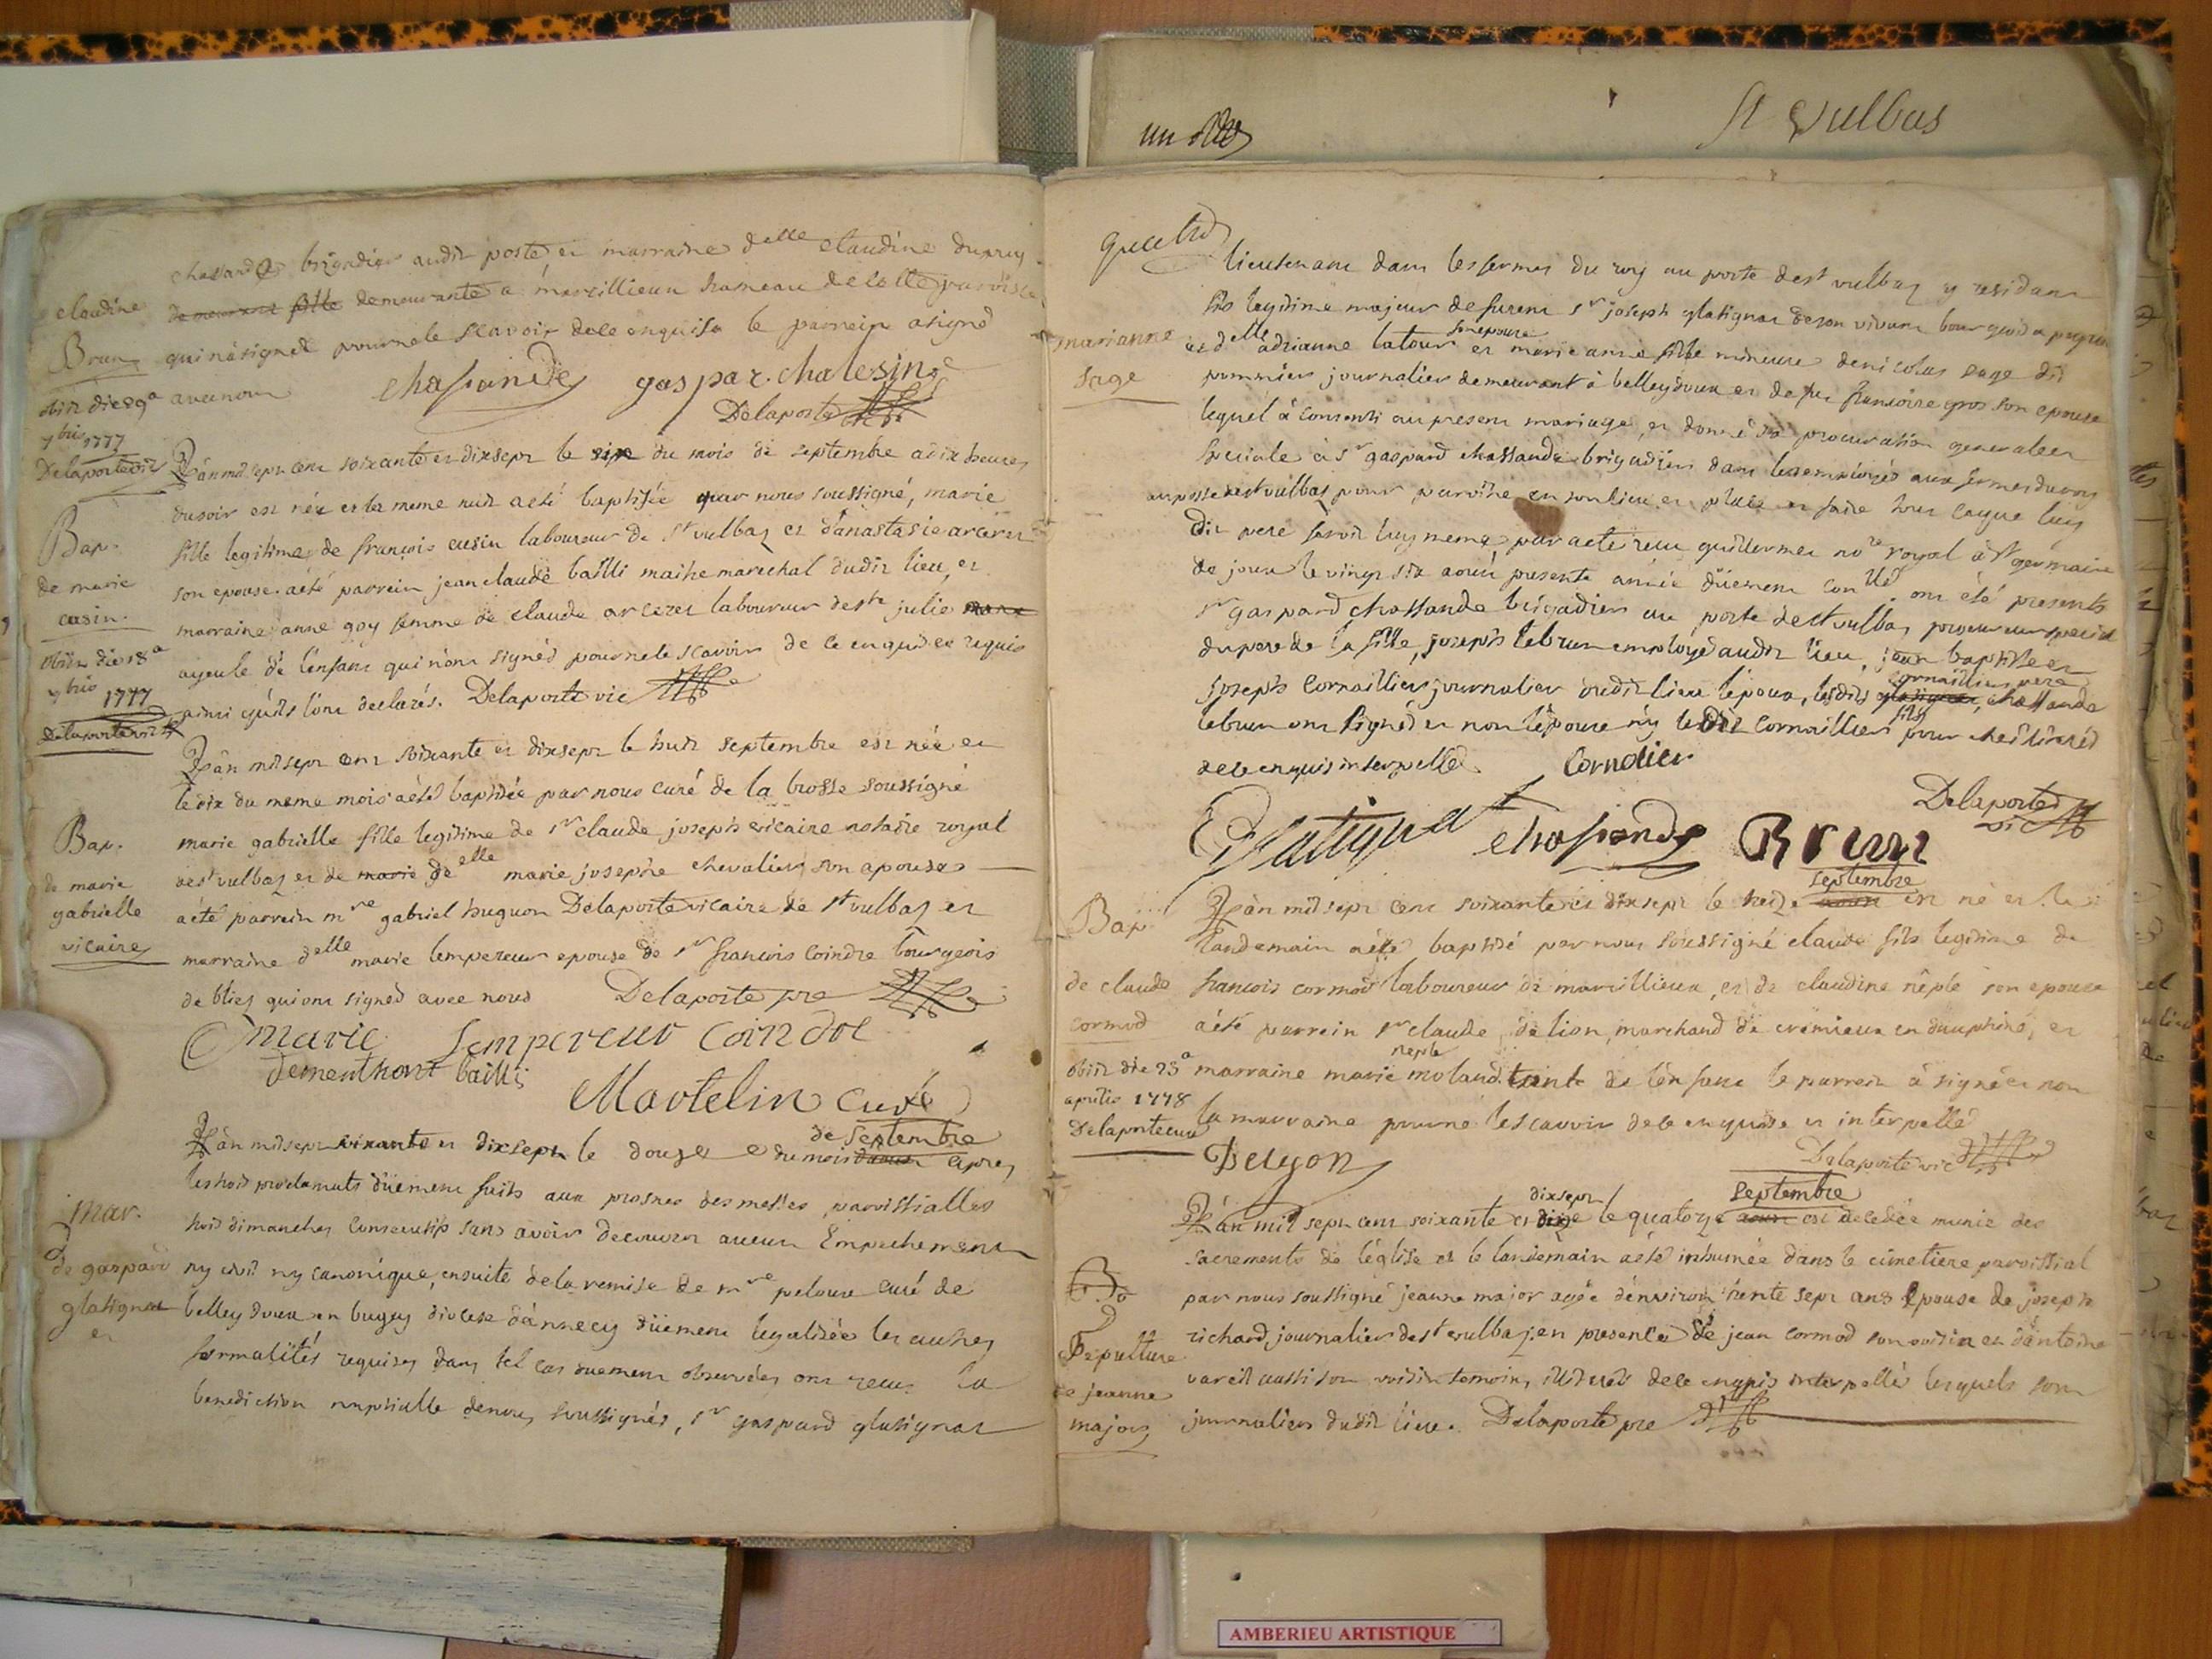 St Vulbas
chassande brigadier audit poste et marraine delle claudine dupuy
claudine
fille demeurante a marcillieux hameau de cette paroisse
Brun
qui n'a signé pour ne le scavoir de ce enquise le parrein a signé
obiit die 9a
avec nous
chasande gaspar chalesin
7bris 1777
Delaporte
Delaporte vic
L'an mil sept cent soixante et dix sept le six du mois de septembre a dix heures
du soir est née et la meme nuit a eté baptisée par nous soussigné, marie
Bap.
fille legitime de françois cusin laboureur de st vulbas et d'anastasie arceret
de marie
son epouse. a été parrein jean claude bailli maitre marechal dudit lieu, et
cusin.
marraine anne goy femme de claude arceret laboureur de ste julie
obiit die 18a
ayeule de l'enfant qui n'ont signés pour ne le scavoir de ce enquis et requis
7bris 1777
ainsi qu'ils l'ont declarés. Delaporte vic
Delaporte vic
L'an mil sept cent soixante et dix sept le huit septembre est née et
le dix du meme mois a été baptisée par nous curé de la brosse soussigné
Bap.
marie gabrielle fille legitime de sr claude joseph vicaire notaire royal
de marie
de st vulbas et de marie delle marie josephe chevalier son epouse
gabrielle
a été parrein mre gabriel huguon Delaporte vicaire de st vulbas et
vicaire
marraine delle marie lempereur epouse de sr francois coindre bourgeois
de blies qui ont signés avec nous Delaporte pre
marie Lempereur Coindre
dementhont bailli
Martelin curé
de septembre
L'an mil sept soixante et dix sept le douze du mois d'aoust apres
les trois proclamats düement faits aux prosnes des messes paroissialles
Mar.
trois dimanches consecutifs sans avoir decouvert aucun Empechement
de gaspard
ny civil ny canonique, ensuite de la remise de mre peloux curé de
glatignat
belleydoux en bugey diocese d'annecy düement legalisée les autres
et
formalités requises dans tel cas duement observées ont recus la
benediction nuptialle de nous soussignés, sr gaspard glatignat
quatre
lieutenant dans les fermes du roy au poste de st vulbas y residant
fils legitime majeur de furent sr joseph glatignat de son vivant bourgeois a
marianne
et delle adrianne latour son epouse et marie anne fille mineure de nicolas sage dit
sage
pommier journalier demeurant à belleydoux et de feu francoise gros son epouse
lequel à consenti au present mariage, et donné sa procuration generale et
speciale à sr gaspard chassande brigadier dans les employés aux fermes du roy
au poste de st vulbas pour paroitre en son lieu et place et faire tout ce que luy
dit pere feroit luy meme par acte recu guillermet nore royal à st germain
de joux le vingt six aout presente année düement conllé. ont été presents
sr gaspard chassande brigadier au poste de st vulbas procureur special
du pere de la fille, joseph lebrun employé audit lieu, jean baptiste et
joseph cornaillier journalier dudit lieu l'epoux, lesdits glatignat, cornaillier pere chassande
lebrun ont signés et non l'epouse ny ledit cornaillier fils pour etre illitérés
de ce enquis interpellé. Cornolier
Delaporte vic
Glatignat chasande Brun
septembre
L'an mil sept cent soixante et dix sept le treize aoust est né et le
Bap
landemain a été baptisé par nous soussigné claude fils legitime de
de claude
francois cormod laboureur de marcillieux, et de claudine néple son epouse
cormod
a été parrein sr claude, de lion, marchand de cremieux en dauphiné, et
obiit die 23a
marraine marie neple molaud tante de l'enfant le parrein à signé et non
aprilis 1778
la marraine pour ne le scavoir de ce enquise et interpellé
Delaporte curé
Delyon
Delaporte vic
dix sept septembre
L'an mil sept cent soixante et dix le quatorze aoust est decedée munie des
sacrements de l'église et le landemain a été inhumée dans le cimetiere paroissial
par nous soussigné jeanne major agée d'environ trente sept ans epouse de joseph
Sepulture
richard, journalier de st vulbas, en presence de jean cormod son voisin et d'antoine
de jeanne
vareil aussi son voisin temoins illiterés de ce enquis interpellé lesquels sont
major
journaliers dudit lieu. Delaporte pre
AMBERIEU ARTISTIQUE